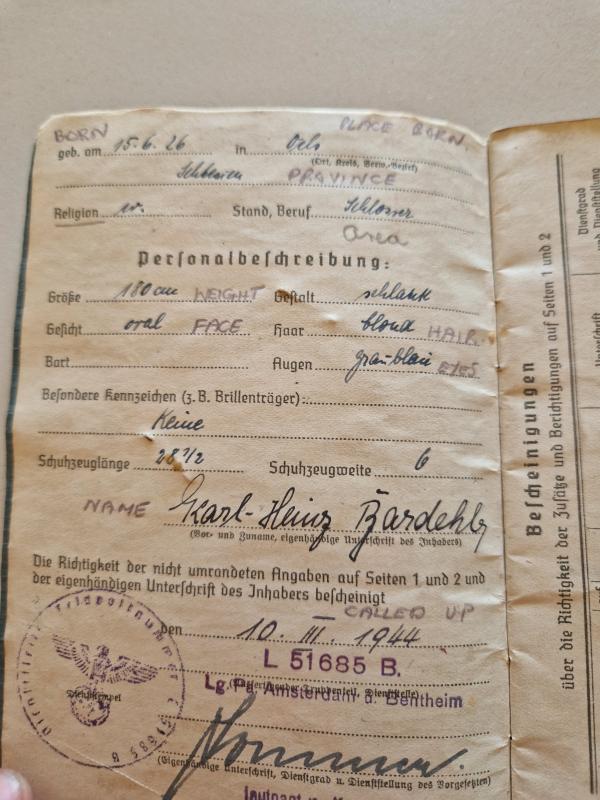 BORN PLACE BORN
geb. am 15.6.26 in Oels
(Ort, Kreis, Verw.-Bezirk)
Schlesien PROVINCE
Religion Stand, Beruf Schlosser
Area
Personalbeschreibung:
Größe 180 cm HEIGHT Gestalt schlank
Gesicht oval FACE Haar blond HAIR
Bart Augen graublau EYES
Besondere Kennzeichen (z.B. Brillenträger):
Keine
Schuhzeuglänge 28 1/2 Schuhzeugweite 6
NAME Karl-Heinz Bardehle
(Vor- und Zuname, eigenhändige Unterschrift des Inhabers)
Die Richtigkeit der nicht umrandeten Angaben auf Seiten 1 und 2 und
der eigenhändigen Unterschrift des Inhabers bescheinigt
CALLED UP
den 10. III. 1944
L 51685 B.
Lg.Pa. Amsterdam ü. Bentheim
Dienststempel
Feldpostnummer L 51685 B
(Eigenhändige Unterschrift, Dienstgrad u. Dienststellung des Vorgesetzten)
Bescheinigungen
über die Richtigkeit der Zusätze und Berichtigungen auf Seiten 1 und 2
Dienstgrad
und Dienststellung